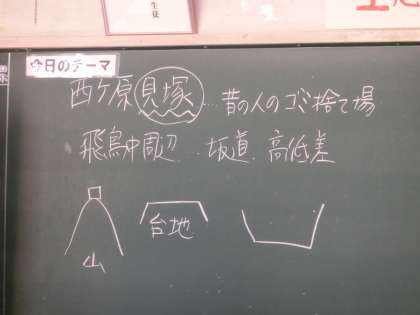 生徒
今日のテーマ
西ケ原貝塚…昔の人のゴミ捨て場
飛鳥中周辺…坂道、高低差
山
台地